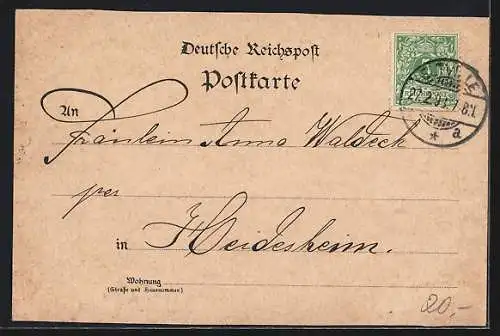 Deutsche Reichspost
Postkarte
An
Fräulein Anna Waldeck
per
in Heidesheim.
Wohnung
(Straße und Hausnummer)
a
20,-